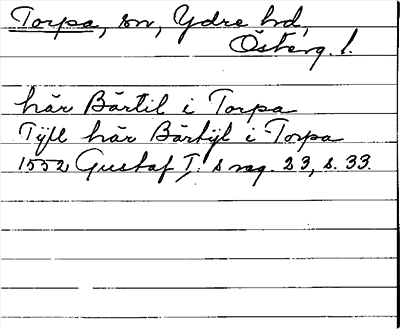 Torpa, sn, Ydre hd,
Österg. l.
här Bärtil i Torpa
Tijll här Bärtijl i Torpa
1552 Gustaf I:s reg. 23, s. 33.